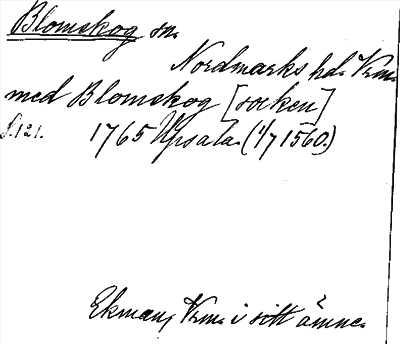 Blomskog sn.
Nordmarks hd. Vrm.
med Blomskog [socken]
s. 121. 1765 Upsala. (1/7 1560.)
Ekman, Vrm. i sitt ämne.